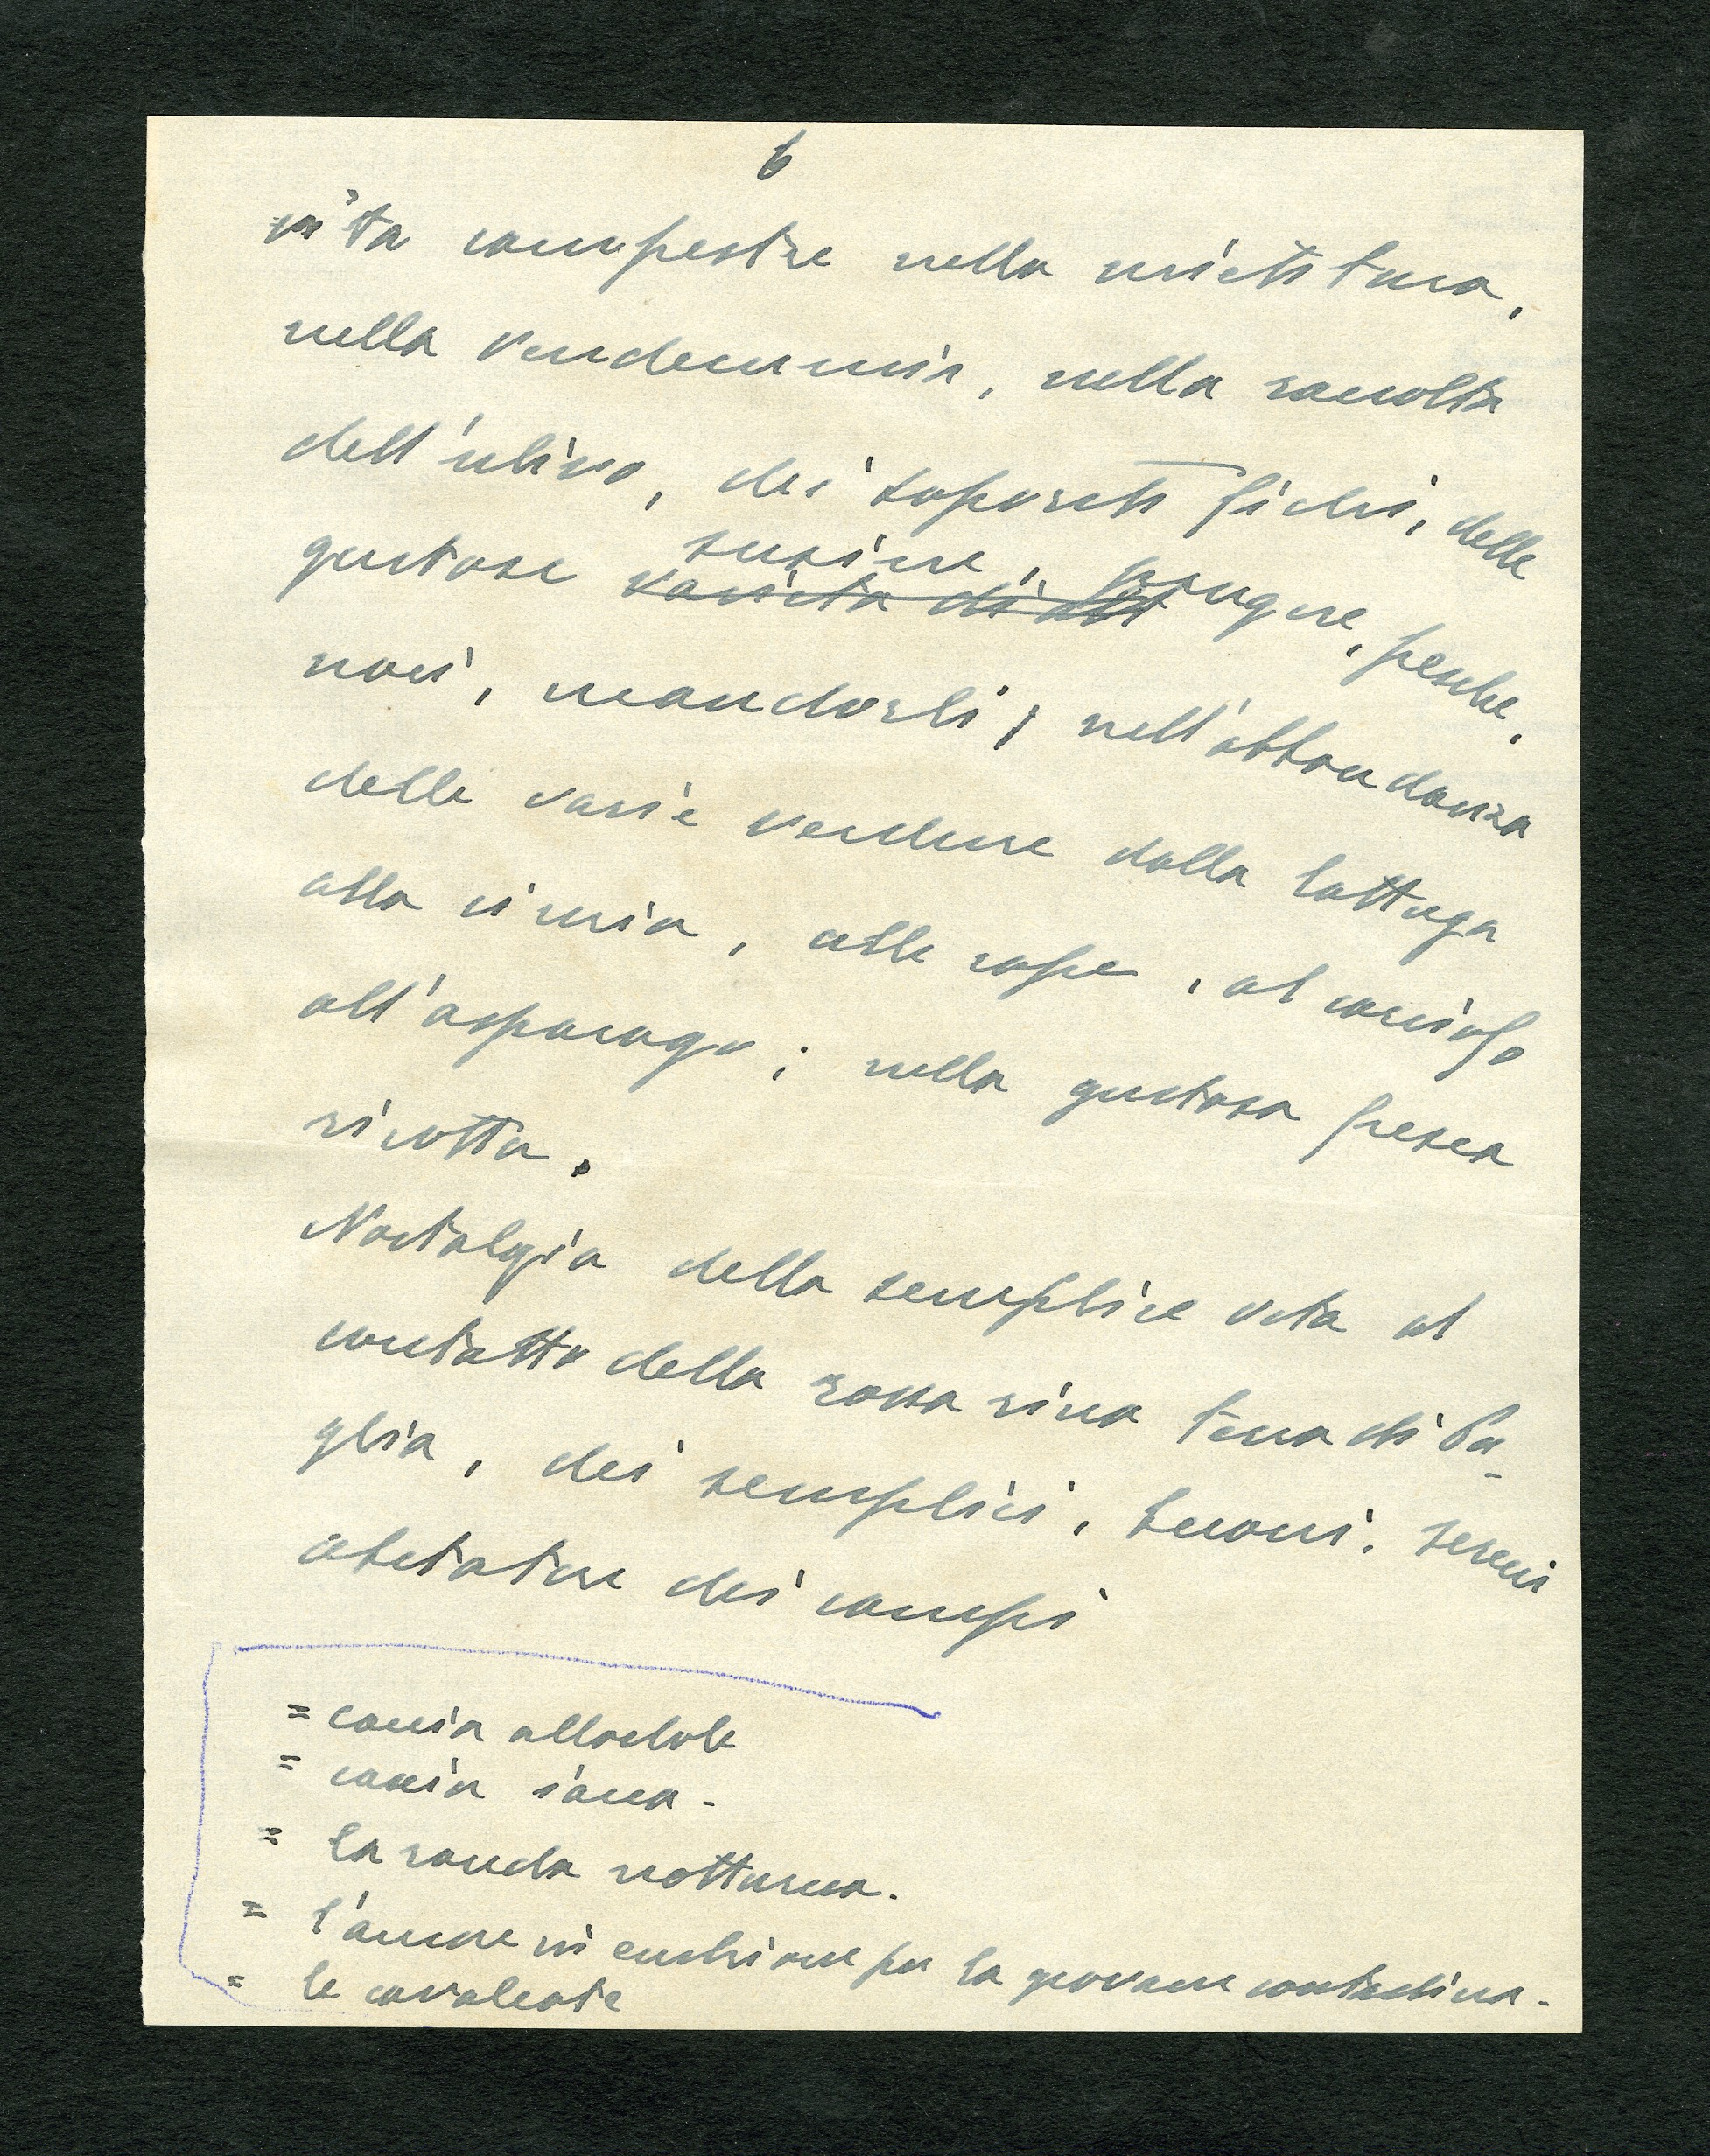 6
vita campestre nella mietitura,
nella vendemmia, nella raccolta
dell'ulivo, dei saporiti fichi, delle
gustose susine, prugne, pesche,
noci, mandorli; nell'abbondanza
delle varie verdure dalla lattuga
alla cicoria, alle rape, al carciofo
all'asparago; nella gustosa fresca
ricotta.
Nostalgia della semplice vita al
contatto della rossa ricca terra di Pu-
glia, dei semplici, buoni, sereni
abitatori dei campi
= caccia allodole
= caccia
= la ronda notturna.
= l'amore in embrione per la giovane contadina.
= le cavalcate